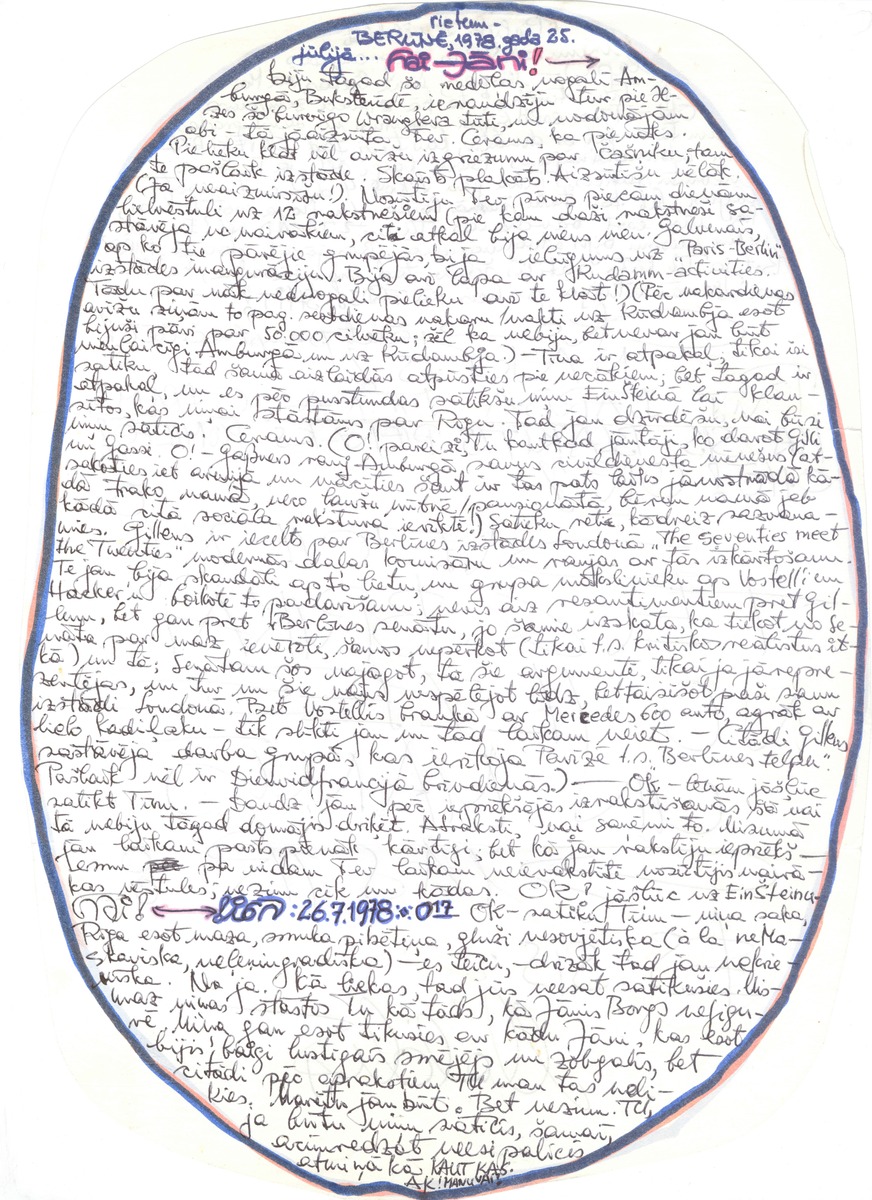 rietum-
BERLĪNĒ, 1978. gada 25.
jūlijā... Čai-Jāni! →
biju tagad šo nedēļas nogali Am-
burgā, Bukstaūdē, ienaudzēju tur pie
šo burvīgo Wranglera tūti, un nodomājām
abi - tā jāaizsūta Tev. Cerams, ka pienāks.
Pielieku klāt vēl avīžu izgriezumu par tam
te pašlaik izstāde. Skaists plakāts! Aizsūtīšu vēlāk.
(Ja neaizmirsīšu!) Nosūtīju Tev pirms piecām dienām
vēstuli uz 12 rakstnešiem (pie kam daži rakstneši sa-
stāvēja no vairākiem, citi atkal bija viens vien. Galvenais,
ap ko tie pārējie grupējas, bija ielūgums uz "Paris-Berlin"
izstādes inaugurāciju. Bija arī lapa ar Kudamm-activities.
Tādu par nāk. nedēļogali pielieku arī te klāt!) (Pēc vakardienas
avīžu ziņām to pag. sestdienas vakaru/nakti uz Kūdambja esot
bijuši pāri par 50.000 cilvēku; žēl ka nebiju, bet nevar jau būt
vienlaicīgi Amburgā un uz Kūdambja.) - Tīna ir atpakaļ, tikai īsi
satiku, tad šamā aizlaidās atpūsties pie vecākiem, bet tagad ir
atpakaļ, un es pēc pusstundas satikšu viņu Einšteinā lai klau-
sītos, kas viņai stāstāms par Rīgu. Tad jau dzirdēšu, vai būsi
viņu saticis! Cerams. (O! pareizi, Tu kautkad jautāji, ko darot Gilli
un Jassi. O! - Gasners rauj Amburgā, savus civildienesta mēnešus (at-
sakoties iet armijā un mācīties šaut ir tas pats laiks jānostrādā kā-
dā trako namā, veco ļaužu mītnē/pansionātā, bērnu namā jeb
kādā citā sociāla rakstura iestādē!) Satieku reti, kādreiz sazvana-
mies. Gillens ir iecelts par Berlīnes izstādes Londonā "The Seventies meet
the Twenties" modernās daļas komisāru un raujas ar tās izkārtošanu.
Te jau bija skandāli ap to lietu, un grupa mākslinieku ap Vostelli un
Haacker'u boikotē to padarīšanu; nevis aiz resantimentiem pret Gil-
lenu, bet gan pret Berlīnes senātu, jo šamie uzskata, ka tiekot no se-
nāta par maz ievēroti, šamos nepērkot (tikai t.s. kritiskos reālistus it-
kā) un tā; senātam šos vajagot, tā šie argumentē, tikai ja jārepre-
zentējas, un tur un šie vairs nespēlējot līdz, bet taisīšot paši savu
izstādi Londonā. Bet Vostellis braukā ar Mercedes 600 auto, agrāk ar
lielo kadiļaku - tik slikti jau un tad laikam neiet. - (Citādi Gillens
sastāvēja darba grupā, kas ierīkoja Parīzē t.s. "Berlīnes telpu".
Pašlaik vēl ir Dienvidfrancijā brīvdienās.) — OK - tūliņ jāšļūc
satikt Tīnu. - Daudz jau pēc iepriekšējās izrakstīšanās šo vai
tā nebiju tagad domājis drikēt. Atraksti, vai saņēmi to. Visumā
jau laikam pasts pienāk kārtīgi, bet kā jau rakstīju iepriekš -
pa vidam Tev laikam neierakstīti nosūtījis vairā-
kas vēstules; nezinu cik un kādas. OK? jāšļūc uz Einšteinu -
Čai! ←→ : 26.7.1978 : 017 OK - satiku Tīnu - viņa saka,
Rīga esot maza, smuka pilsētiņa, gluži nesovjetiska (à la neMa-
skaviska, neleningradiska) - es teicu, - drīzāk tad jau nekrie-
viska. Nu ja. Kā liekas, tad jūs neesat satikušies. Vis-
maz viņas stāstos tu kā tāds, kā Jānis Borgs nefigu-
rē. Viņa gan esot tikusies ar kādu Jāni, kas esot
bijis baigi lustīgais smējējs un zobgalis, bet
citādi pēc apraksta Tu man tas neli-
kies. Varētu jau būt. Bet nezinu. Tu,
ja būtu viņu saticis, šamai,
acīmredzot neesi palicis
atmiņā kā KAUT KAS.
AK! MANUVAI!